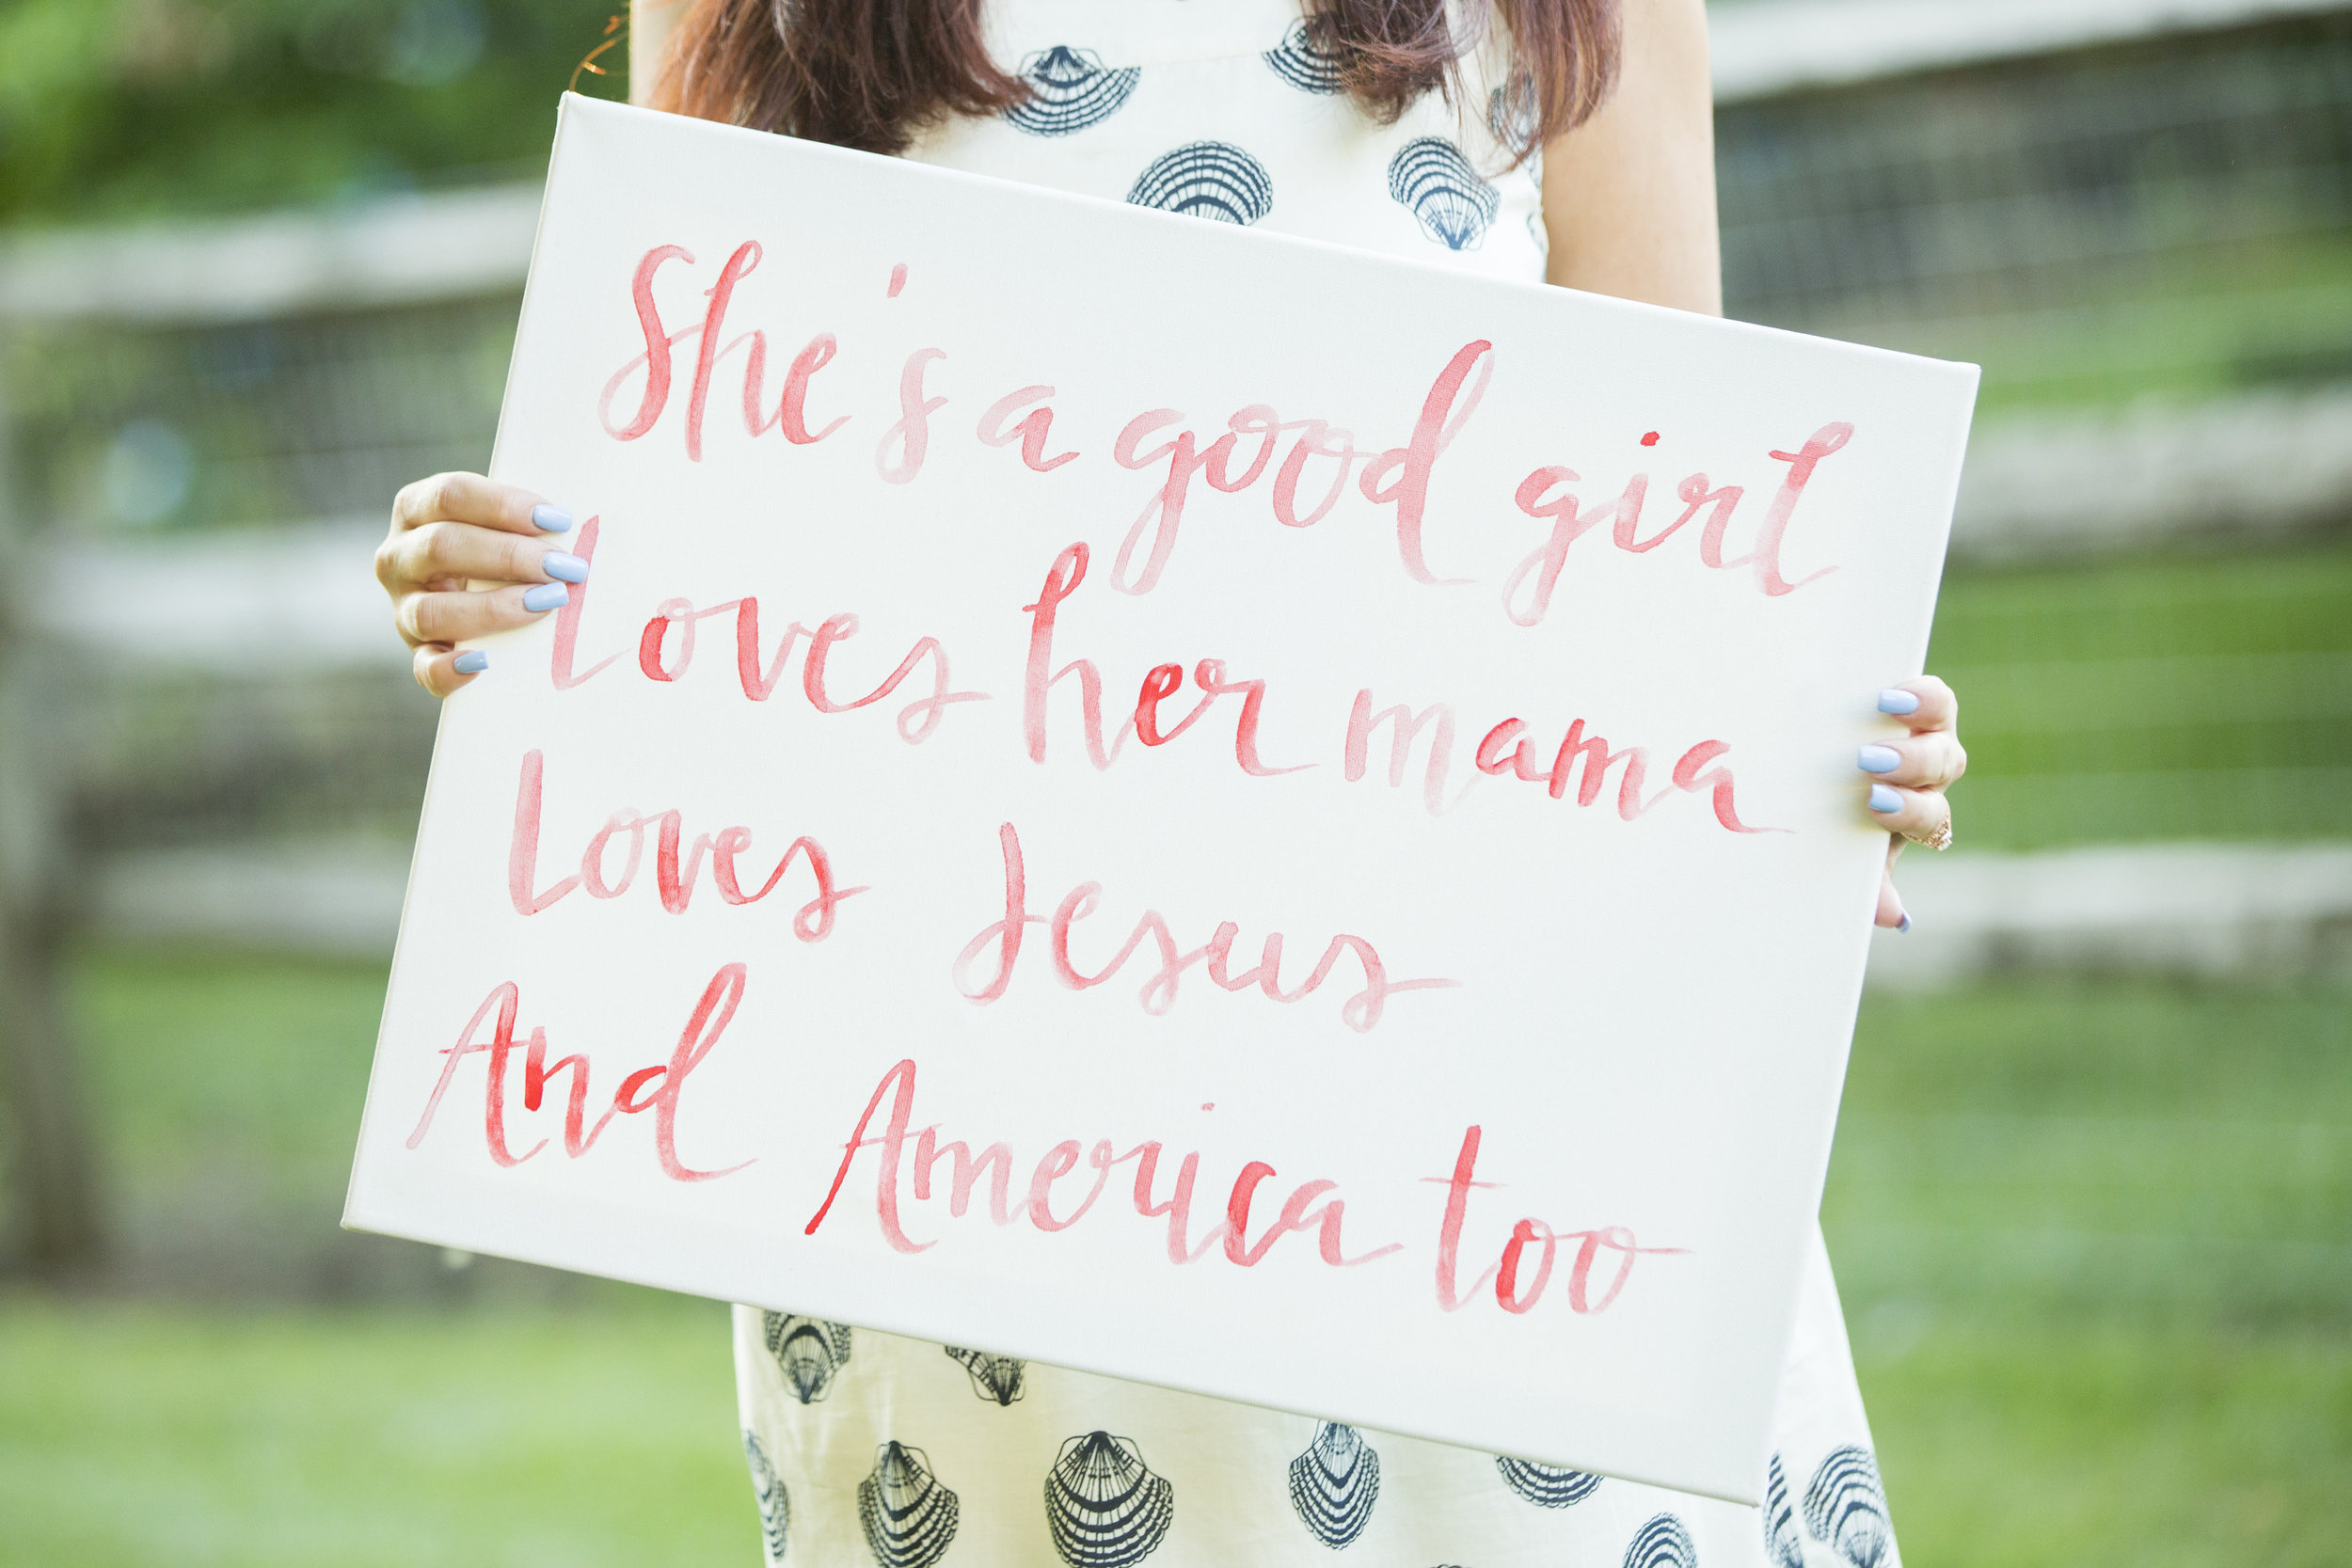 She's a good girl
Loves her mama
Loves Jesus
And America too